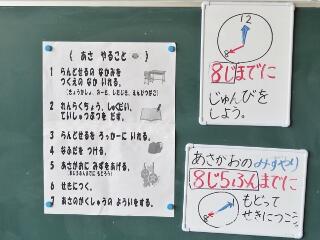 〈 あさ やること 〉
1 らんどせるの なかみを
つくえの なか いれる。
2 れんらくちょう、しゅくだい、
ていしゅつぶつを だす。
3 らんどせるを ろっかーに いれる。
4 なふだを つける。
5 あさがおに みずをあげる。
6 せきにつく。
7 あさのがくしゅうの よういをする。
12
8
8じまでに
じゅんびを
しよう。
あさがおの みずやり
8じ5ふんまでに
もどって
せきにつこう